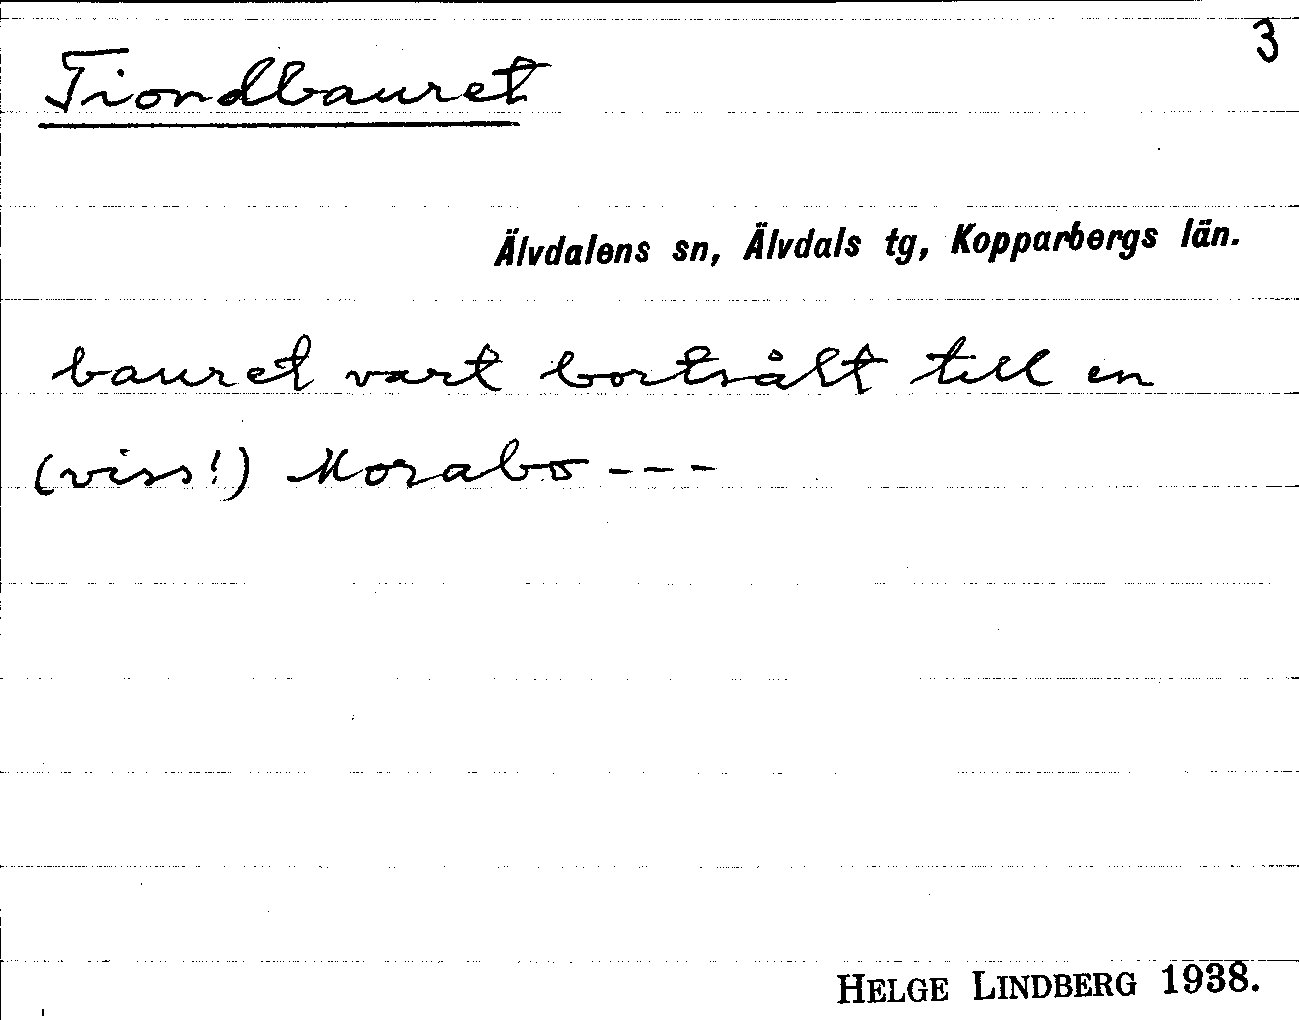 3
Tiondbauret
Älvdalens sn, Älvdals tg, Kopparbergs län.
bauret vart bortsålt till en
(viss!) Morabo ---
HELGE LINDBERG 1938.